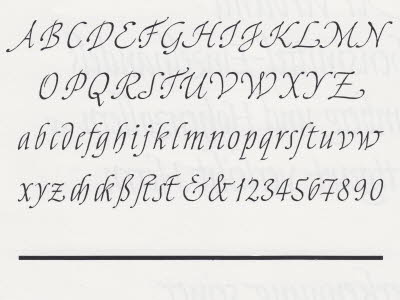 ABCDEFGHIJKLMN
OPQRSTUVWXYZ
abcdefghijklmnopqrsſtuvw
xyz ch ck ß ſt st & & 1234567890